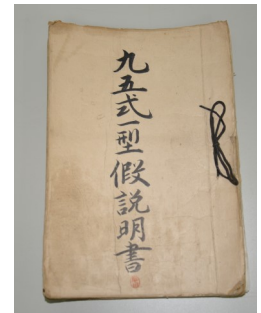 九五式一型假說明書